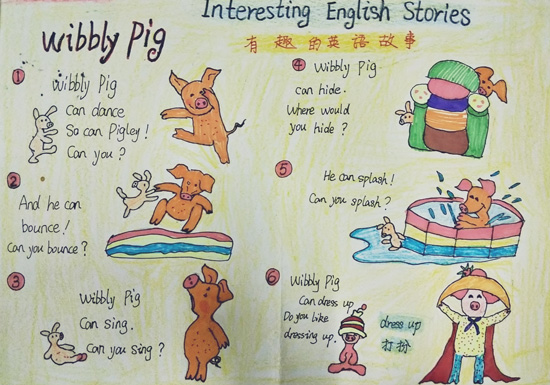 Interesting English Stories
Wibbly Pig
有趣的英語故事
1
Wibbly Pig
Can dance
So can Pigley!
Can you?
2
And he can
bounce!
Can you bounce?
3
Wibbly Pig
Can sing.
Can you sing?
4
Wibbly Pig
can hide.
Where would
you hide?
5
He can splash!
Can you splash?
6
Wibbly Pig
Can dress up
Do you like
dressing up.
dress up
打扮